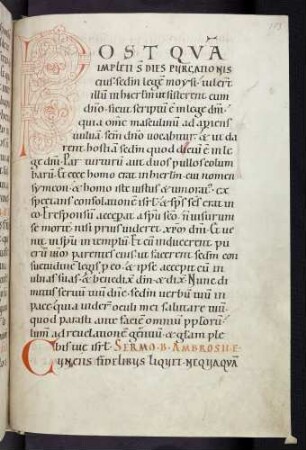 POSTQUA
IMPLETI S DIES PURGATIONIS
eius sedm legē moysi. tulerť
illū inhierłm utsisterent cum
dño. sicut scriptū ē inlege dm̄.
quia ōme masculinū adapiens
vuluā. scm̄ dn̄o vocabitur. & ut da
rent hostiā sedm quod dictū ē inle
ge dm̄. Par turturū aut duos pullos colum
barū. Et ecce homo erat inhierłm cui nomen
symeon. & homo iste iustus & timorat. ex
spectans consolationē isrł. & sps scs erat in
eo. Et responsū accepat aspu sco. n uisurum
se mortē. nisi prius uideret xpm dn̄i. Et ue
nit inspu intemplū. Et cū inducerent pu
erū ihm parentes eius ut facerent sedm con
suetudinē legis p eo. & ipse accepit eū in
ulnas suas. & benedix dm̄. & dix. Nunc di
mittis seruū tuū dn̄e. sedm uerbū tuū in
pace. quia uider oculi mei salutare tuū.
quod parasti. ante faciē omniū pplorū.
lumen adreuelationē gentiū. & glam ple
bis tue isrł. SERMO. B. AMBROSII. E
CUNCTIS FIDELIBUS LIQUET. NEQUAQUĀ